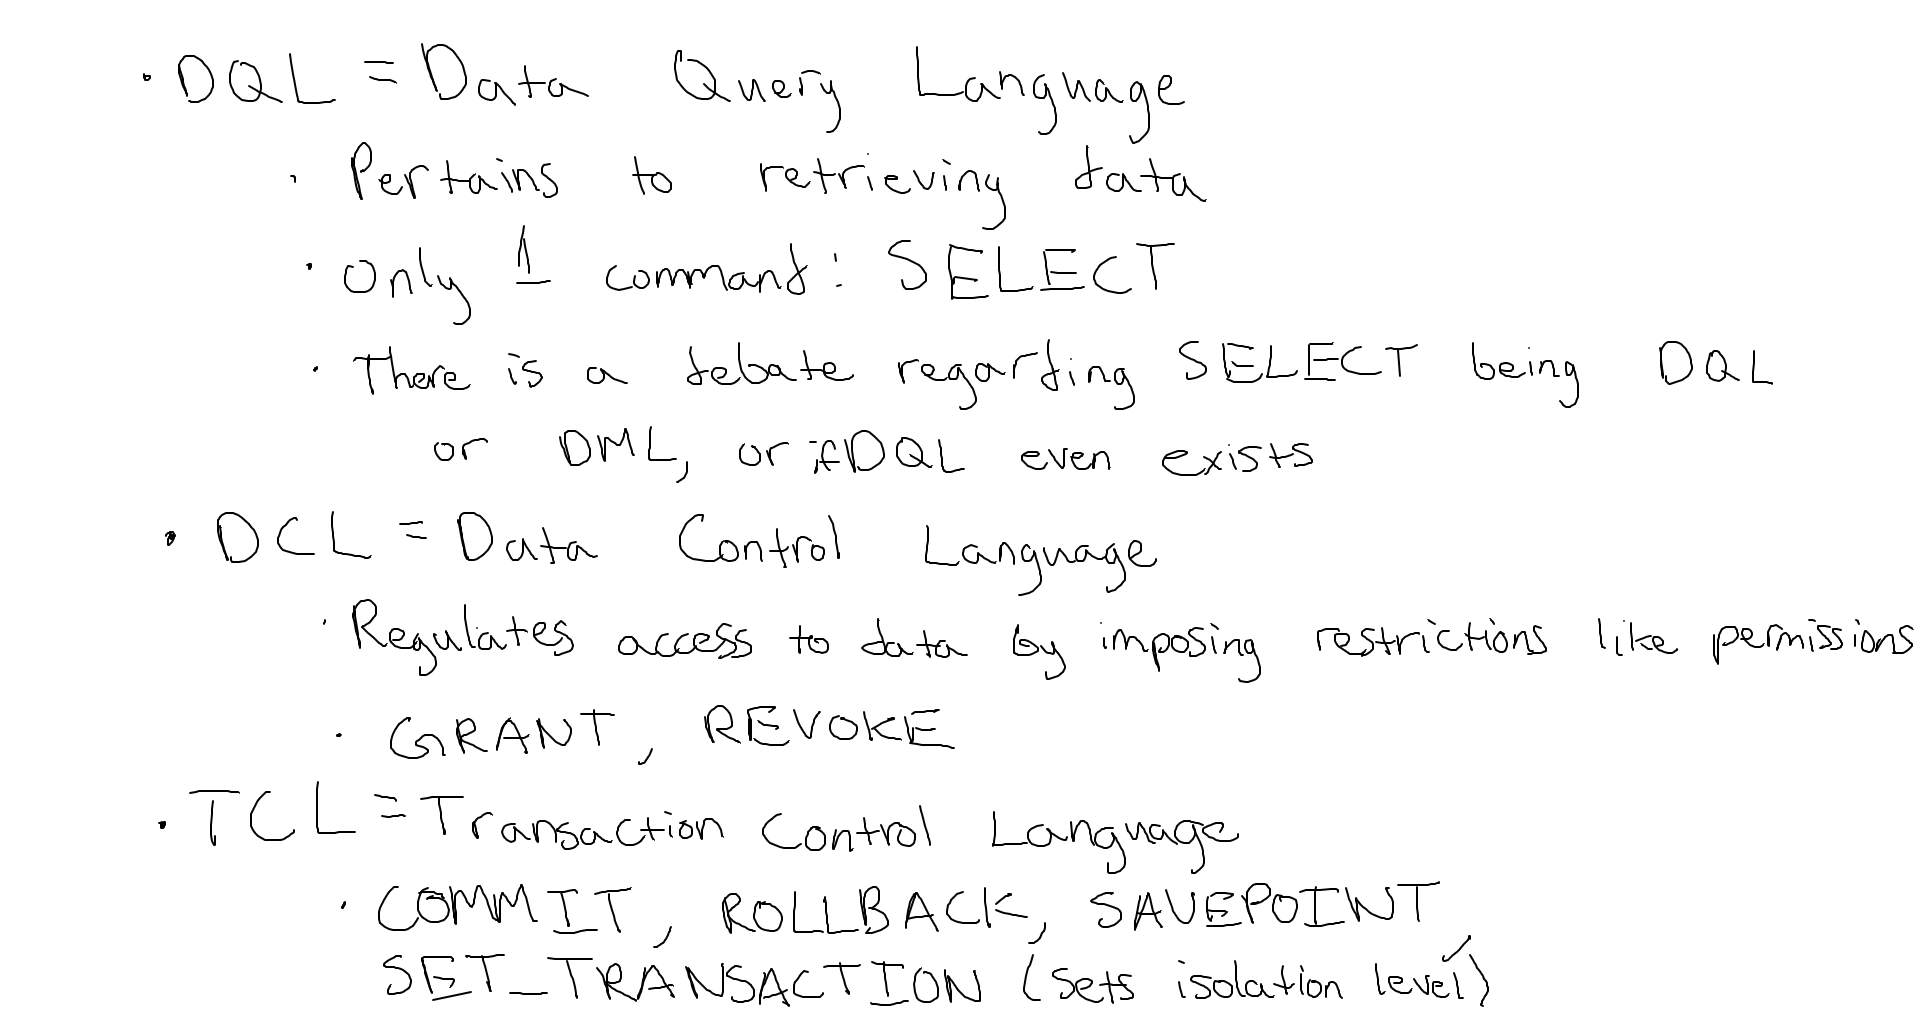 · DQL = Data Query Language
· Pertains to retrieving data
· Only 1 command: SELECT
· There is a debate regarding SELECT being DQL
or DML, or if DQL even exists
· DCL = Data Control Language
· Regulates access to data by imposing restrictions like permissions
· GRANT, REVOKE
· TCL = Transaction Control Language
· COMMIT, ROLLBACK, SAVEPOINT,
SET_TRANSACTION (sets isolation level)